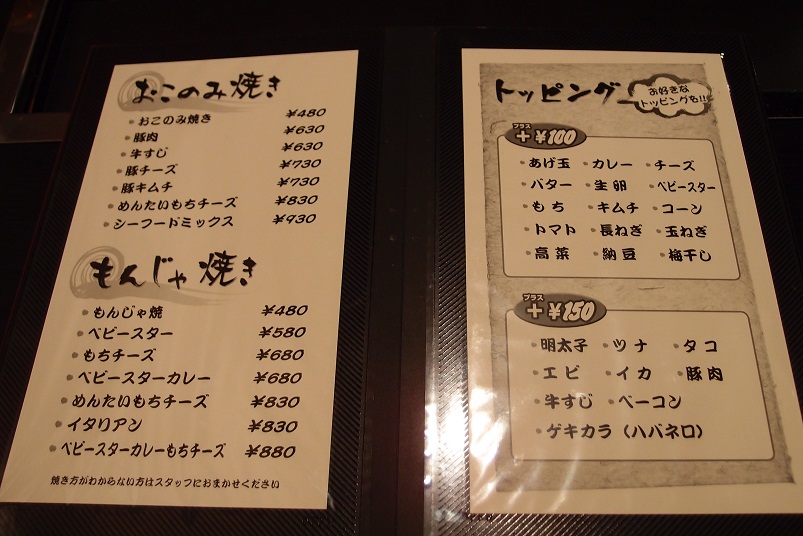 おこのみ焼き
おこのみ焼き ¥480
豚肉 ¥630
牛すじ ¥630
豚チーズ ¥730
豚キムチ ¥730
めんたいもちチーズ ¥830
シーフードミックス ¥930
もんじゃ焼き
もんじゃ焼 ¥480
ベビースター ¥580
もちチーズ ¥680
ベビースターカレー ¥680
めんたいもちチーズ ¥830
イタリアン ¥830
ベビースターカレーもちチーズ ¥880
焼き方がわからない方はスタッフにおまかせください
トッピング
お好きな
トッピングを!!
プラス
+¥100
あげ玉 カレー チーズ
バター 生卵 ベビースター
もち キムチ コーン
トマト 長ねぎ 玉ねぎ
高菜 納豆 梅干し
プラス
+¥150
明太子 ツナ タコ
エビ イカ 豚肉
牛すじ ベーコン
ゲキカラ(ハバネロ)